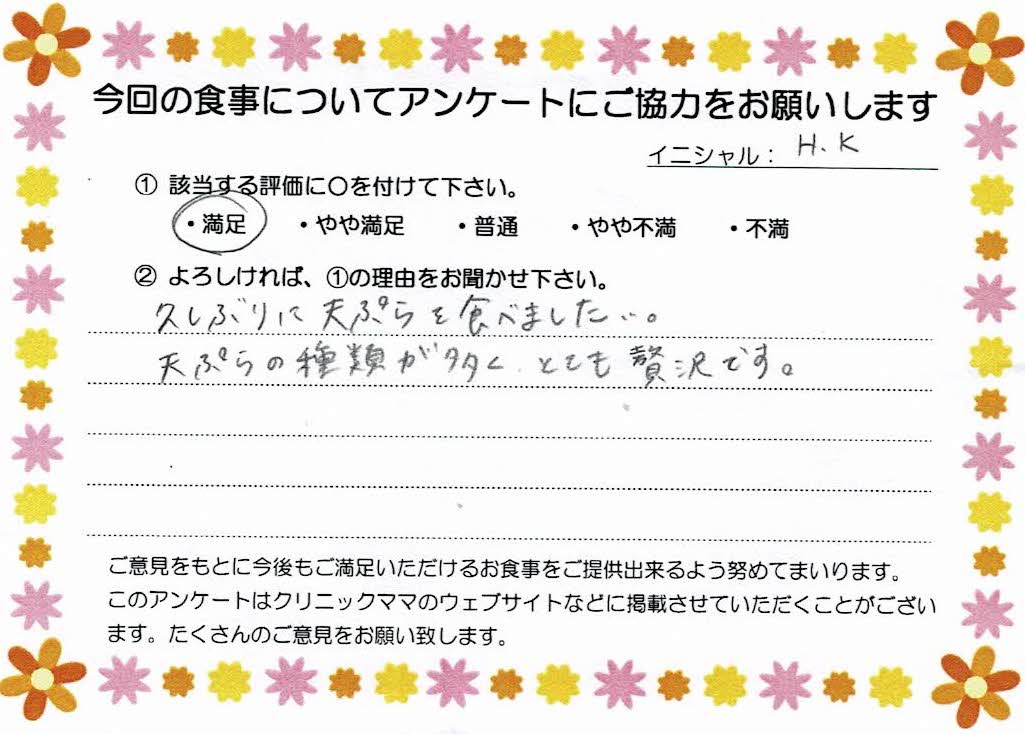 今回の食事についてアンケートにご協力をお願いします
イニシャル： H.K
① 該当する評価に〇を付けて下さい。
・満足 ・やや満足 ・普通 ・やや不満 ・不満
② よろしければ、①の理由をお聞かせ下さい。
久しぶりに天ぷらを食べました…。
天ぷらの種類が多く、とても贅沢です。
ご意見をもとに今後もご満足いただけるお食事をご提供出来るよう努めてまいります。
このアンケートはクリニックママのウェブサイトなどに掲載させていただくことがござい
ます。たくさんのご意見をお願い致します。